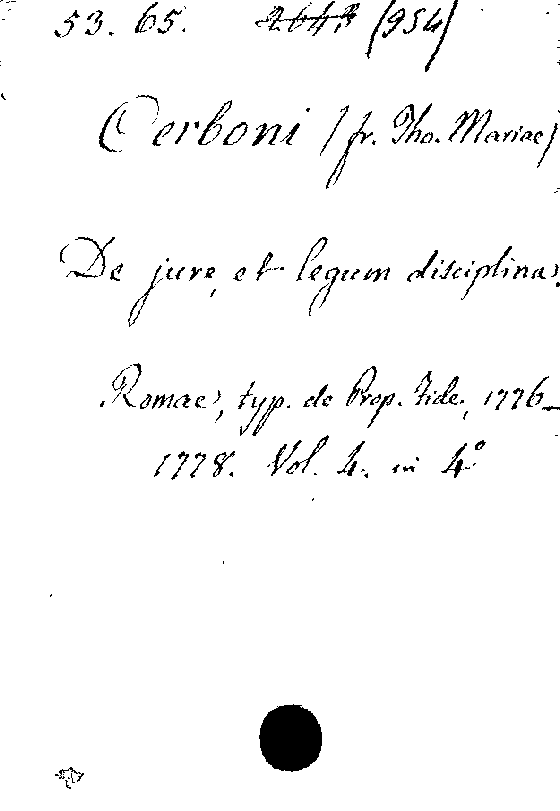 53. 65. 2643 (954)
Cerboni (fr. Tho. Mariae)
De jure, et legum disciplina.
Romae, typ. de Prop. Fide, 1776_
1778. Vol. 4. in 4º